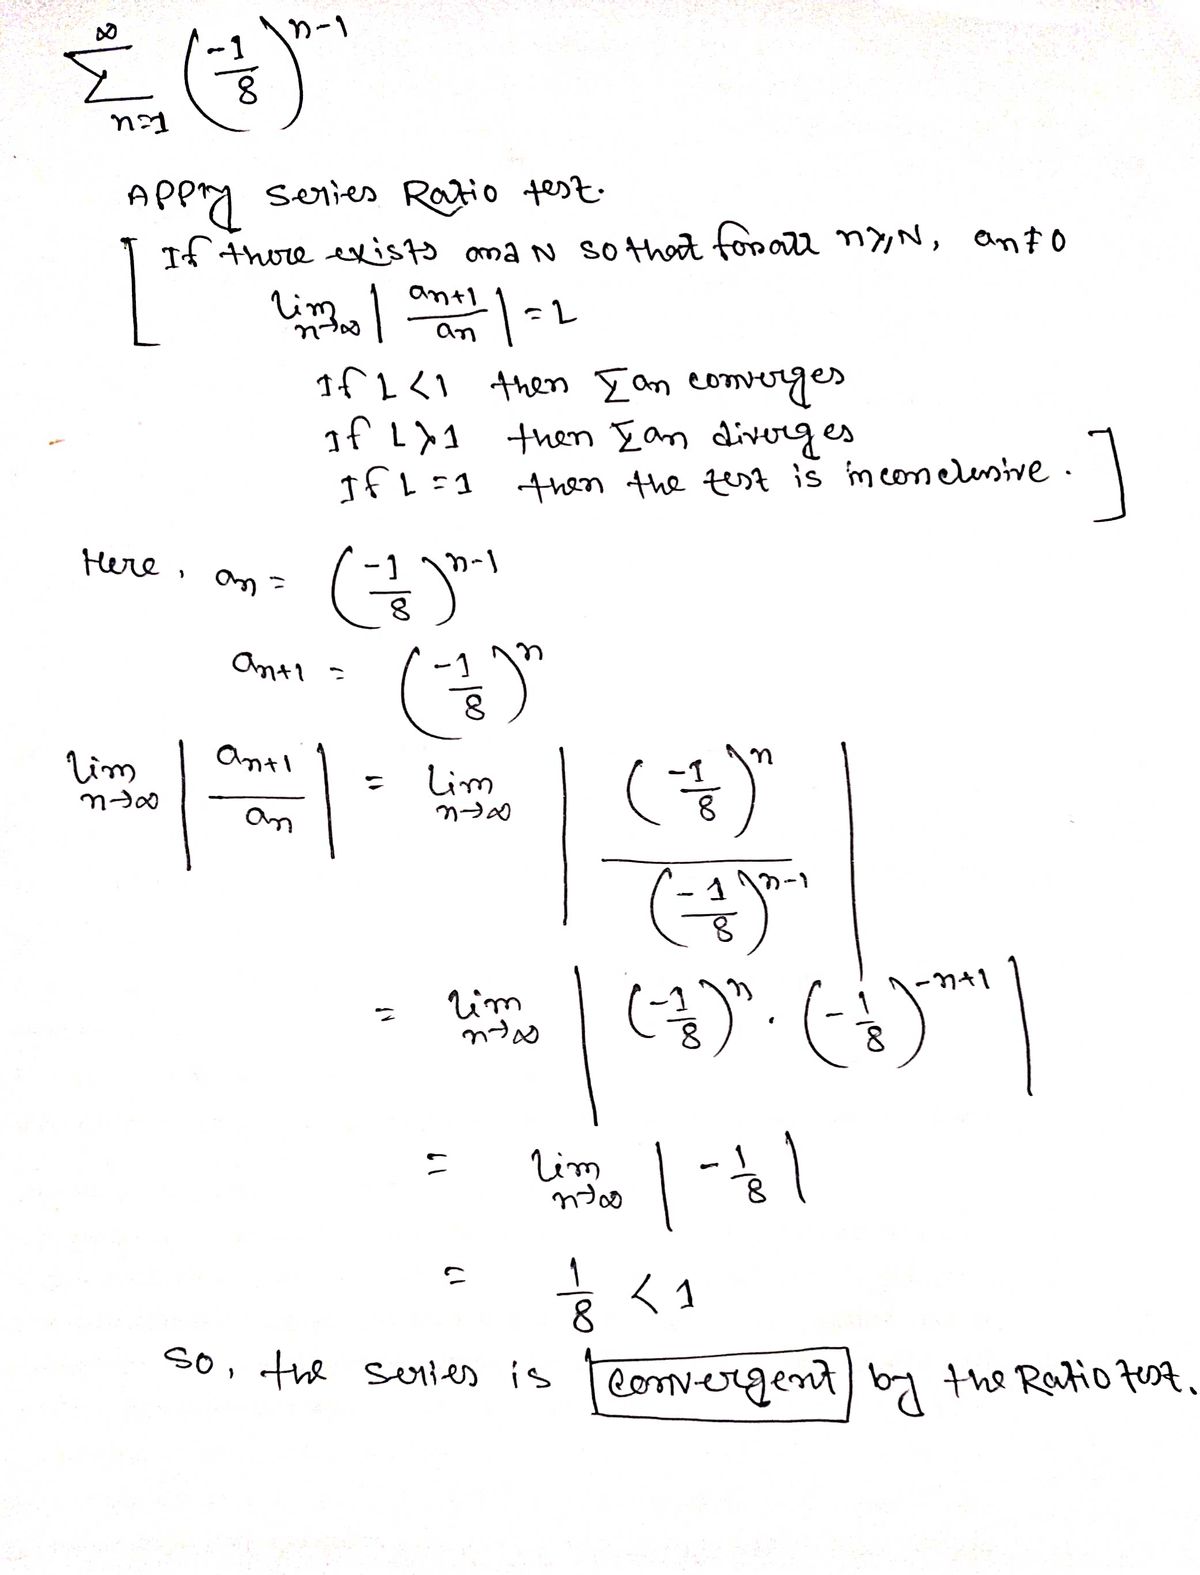 ∞
∑ (-1/8)^(n-1)
n=1
Apply series Ratio test.
[ If there exists and N so that for all n≥N, an≠0
lim n→∞ | an+1 / an | = L
If L<1 then Σan converges
If L>1 then Σan diverges
If L=1 then the test is inconclusive. ]
Here, an = (-1/8)^(n-1)
an+1 = (-1/8)^n
lim n→∞ | an+1 / an | = lim n→∞ | (-1/8)^n / (-1/8)^(n-1) |
= lim n→∞ | (-1/8)^n . (-1/8)^(-n+1) |
= lim n→∞ | -1/8 |
= 1/8 < 1
So, the series is convergent by the Ratio test.